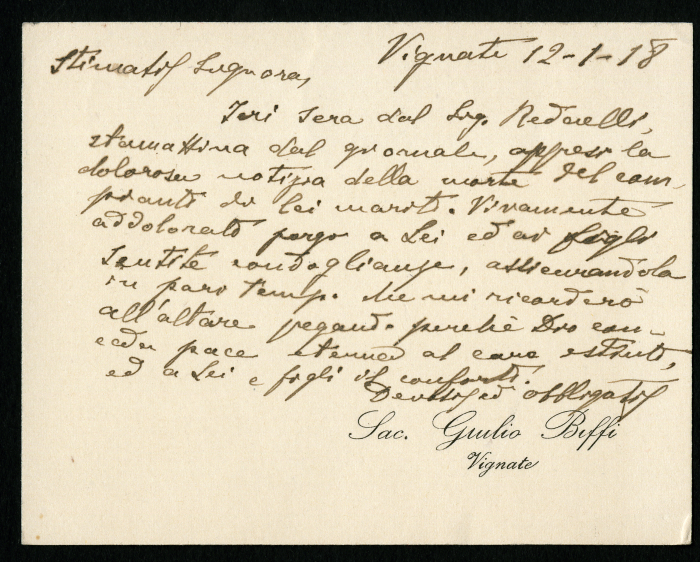 Vignate 12-1-18
Stimatis Signora,
Ieri sera dal Sig. Redaelli,
stamattina dal giornale, appresi la
dolorosa notizia della morte del com-
pianto di lei marito. Vivamente
addolorato porgo a Lei ed ai figli
sentite condoglianze, assicurandola
in pari tempo che mi ricorderò
all'altare pegando perchè Dio con-
ceda pace eterna al caro estinto,
ed a Lei e figli il conforto.
Devotis ed obbligatis
Sac. Giulio Biffi
Vignate